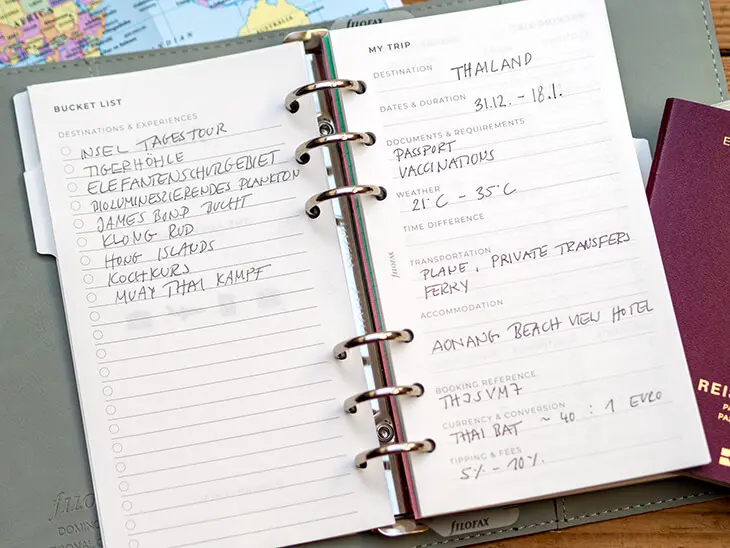 AUSTRALIA
INDIAN
FILOFAX
BUCKET LIST
DESTINATIONS & EXPERIENCES
INSEL TAGESTOUR
TIGERHÖHLE
ELEFANTENSCHUTZGEBIET
BIOLUMINESZIERENDES PLANKTON
JAMES BOND BUCHT
KLONG RUD
HONG ISLANDS
KOCHKURS
MUAY THAI KAMPF
MY TRIP
DESTINATION THAILAND
DATES & DURATION 31.12. – 18.1.
DOCUMENTS & REQUIREMENTS
PASSPORT
VACCINATIONS
WEATHER
21°C – 35°C
TIME DIFFERENCE
TRANSPORTATION
PLANE, PRIVATE TRANSFERS
FERRY
ACCOMMODATION
AONANG BEACH VIEW HOTEL
BOOKING REFERENCE
THJSVM7
CURRENCY & CONVERSION
THAI BAT ~ 40 : 1 EURO
TIPPING & FEES
5% – 10%.
FILOFAX
FILOFAX
REIS
filo
DOMIN